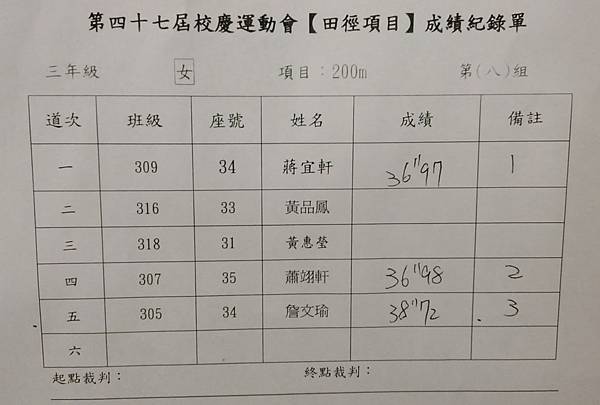 第四十七屆校慶運動會【田徑項目】成績紀錄單
三年級 女 項目：200m 第(八)組
道次 班級 座號 姓名 成績 備註
一 309 34 蔣宜軒 36"97 1
二 316 33 黃品鳳
三 318 31 黃惠瑩
四 307 35 蕭翊軒 36"98 2
五 305 34 詹文瑜 38"72 3
六
起點裁判： 終點裁判：